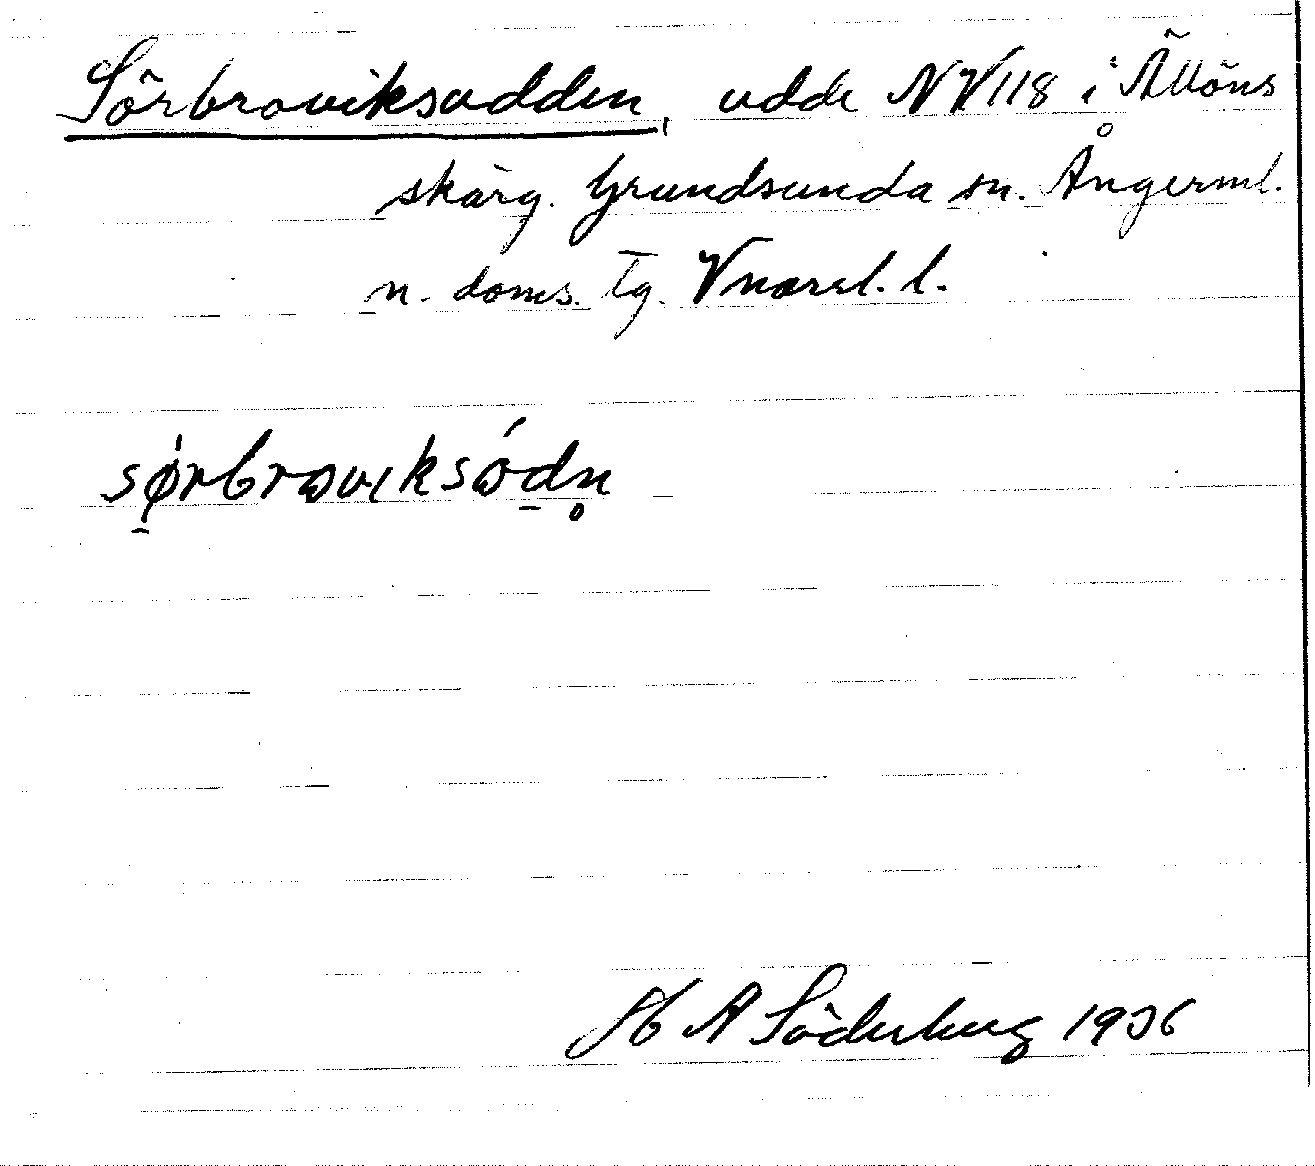 Sörbroviksudden, udde NV 118 i Ällöns
skärg. Grundsunda sn. Ångerml.
n. doms. tg.
sørbrovıksódn̥
H A Söderberg 1936